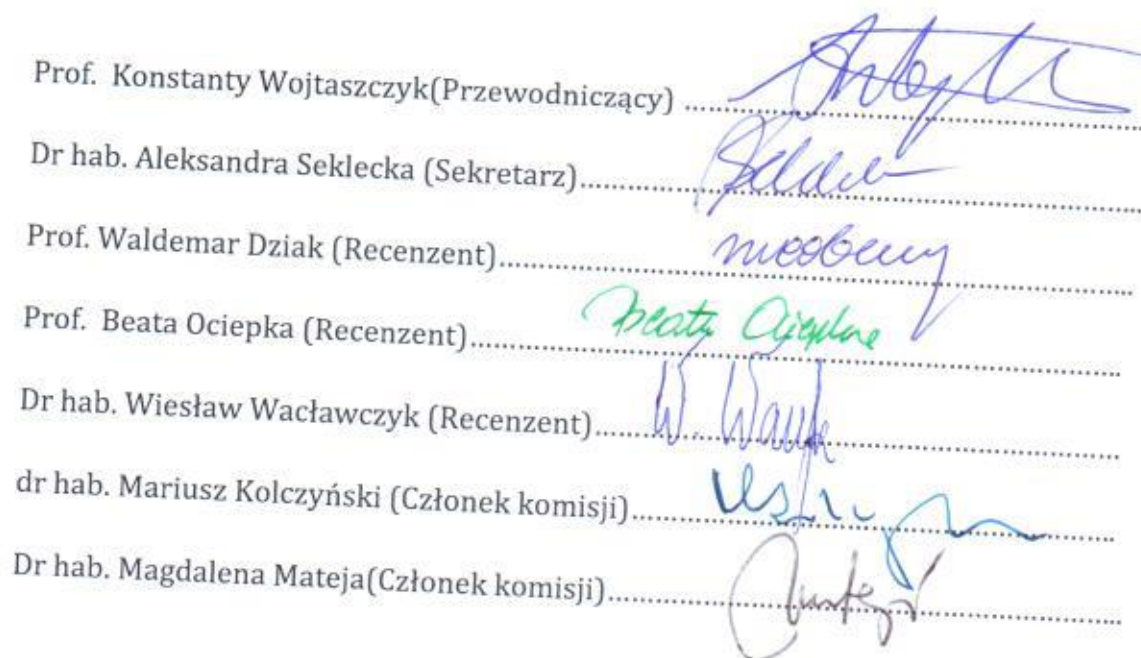 Prof. Konstanty Wojtaszczyk(Przewodniczący) ........................
Dr hab. Aleksandra Seklecka (Sekretarz)........................
Prof. Waldemar Dziak (Recenzent)........................ nieobecny
Prof. Beata Ociepka (Recenzent)........................ Beata Ociepka
Dr hab. Wiesław Wacławczyk (Recenzent)........................ W.
dr hab. Mariusz Kolczyński (Członek komisji)........................
Dr hab. Magdalena Mateja(Członek komisji)........................